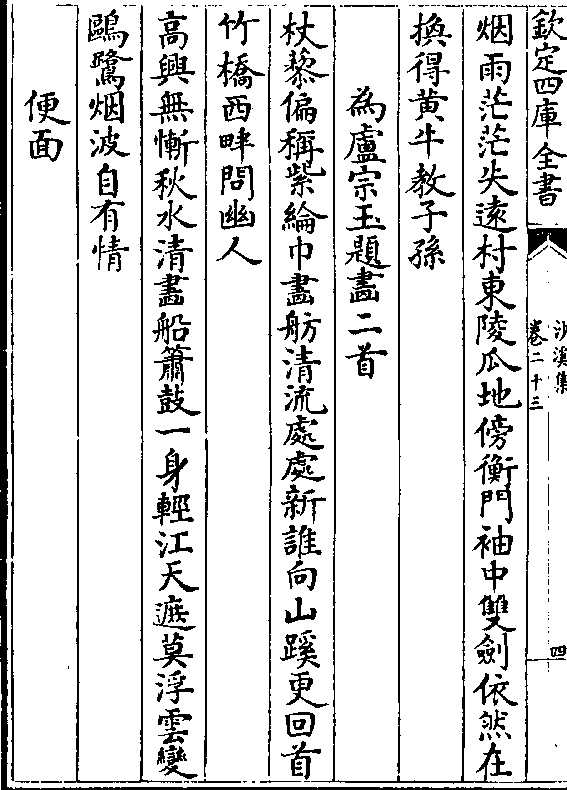 欽定四庫全書
沙溪集
卷二十三
四
烟雨茫茫失遠村東陵瓜地傍衡門袖中雙劍依然在
換得黄牛教子孫
為盧宗玉題畫二首
杖藜偏稱紫綸巾畫舫清流處處新誰向山蹊更回首
竹橋西畔問幽人
高興無慚秋水清畫船簫鼓一身輕江天遮莫浮雲變
鷗鷺烟波自有情
便面